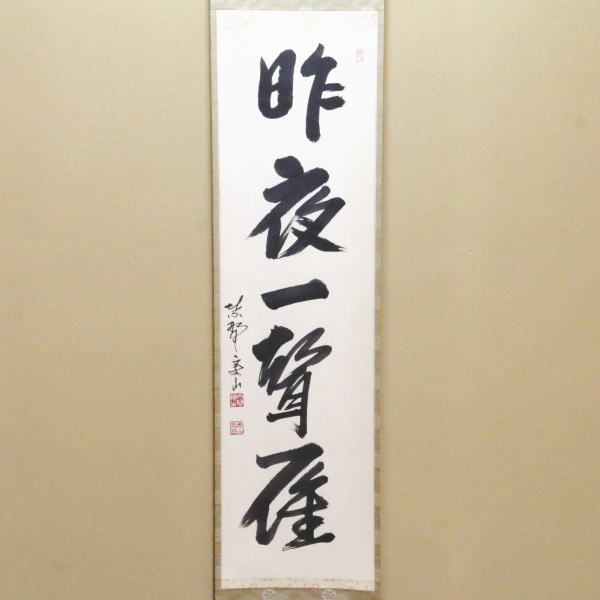 昨夜一聲雁
紫野寛山